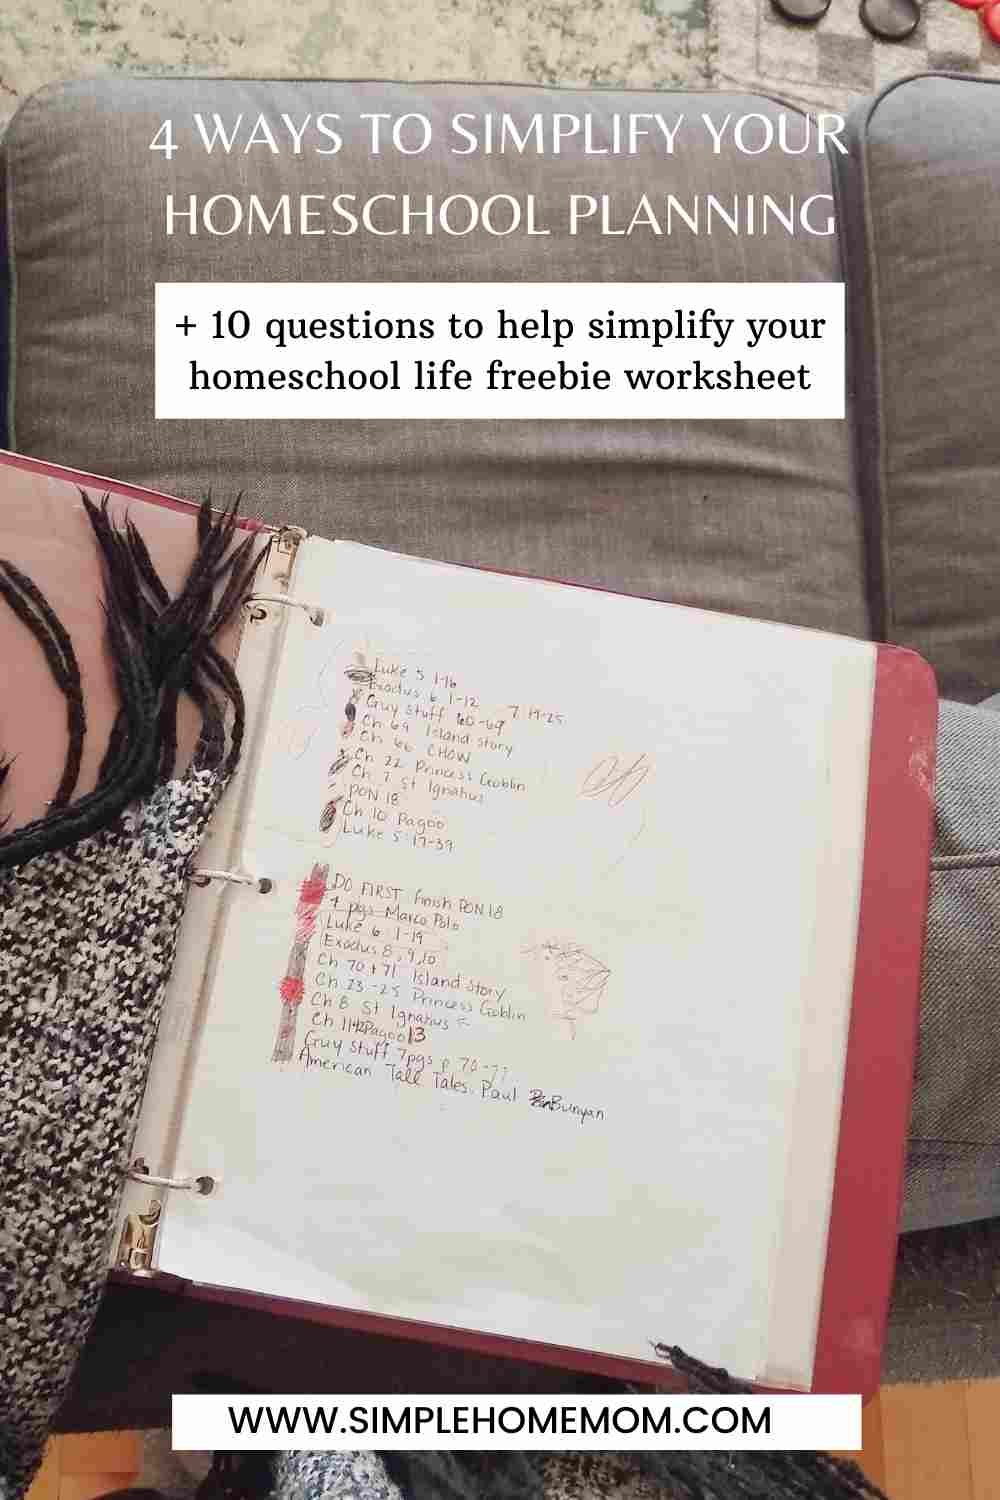 4 WAYS TO SIMPLIFY YOUR
HOMESCHOOL PLANNING
+ 10 questions to help simplify your
homeschool life freebie worksheet
Luke 5 1-16
Exodus 6 1-12 7 14-25
Guy Stuff 60-69
Ch 69 Island Story
Ch 66 CHOW
Ch 22 Princess Goblin
Ch 7 St Ignatius
PON 18
Ch 10 Pagoo
Luke 5 17-39
DO FIRST finish PON 18
4 pgs Marco Polo
Luke 6 1-19
Exodus 8, 9, 10
Ch 70 + 71 Island Story
Ch 23-25 Princess Goblin
Ch 8 St Ignatius
Ch Pagoo 13
Guy Stuff 7pgs p 70-77
American Tall Tales. Paul Bunyan
WWW.SIMPLEHOMEMOM.COM